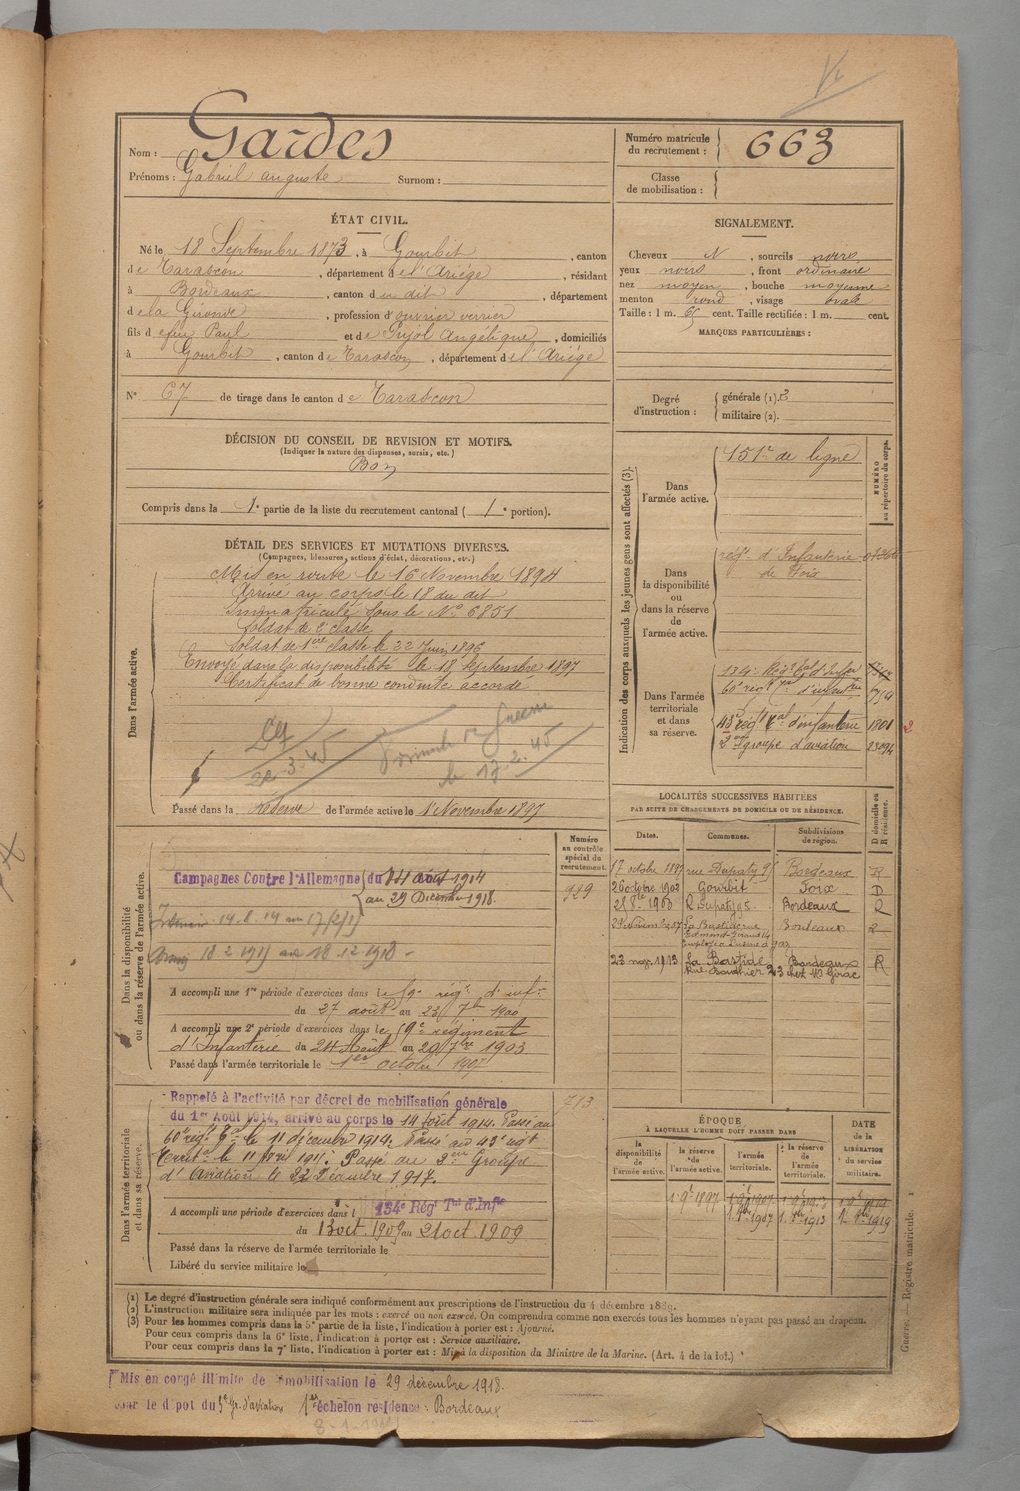 Nom : Gardes
Prénoms : Gabriel auguste Surnom :
Numéro matricule du recrutement : 663
Classe de mobilisation :
ÉTAT CIVIL.
Né le 18 Septembre 1873, à Gourbit, canton
de Tarascon, département de l'Ariège, résidant
à Bordeaux, canton du dit, département
de la Gironde, profession d'ouvrier verrier
fils de feu Paul et de Pujol Angélique, domiciliés
à Gourbit, canton de Tarascon, département de l'Ariège
N° 67 de tirage dans le canton de Tarascon
SIGNALEMENT.
Cheveux N, sourcils noirs
yeux noirs, front ordinaire
nez moyen, bouche moyenne
menton rond, visage ovale
Taille : 1 m. 65 cent. Taille rectifiée : 1 m. cent.
MARQUES PARTICULIÈRES :
Degré d'instruction : générale (1). 3
militaire (2).
DÉCISION DU CONSEIL DE REVISION ET MOTIFS.
(Indiquer la nature des dispenses, sursis, etc.)
Bon
Compris dans la 1e partie de la liste du recrutement cantonal (1e portion).
DÉTAIL DES SERVICES ET MUTATIONS DIVERSES.
(Campagnes, blessures, actions d'éclat, décorations, etc.)
Dans l'armée active.
Mis en route le 16 Novembre 1894
Arrivé au corps le 18 du dit
Immatriculé sous le N° 6851
Soldat de 2e classe
Soldat de 1ère classe le 22 Juin 1896
Envoyé dans la disponibilité le 18 Septembre 1897
Certificat de bonne conduite accordé
22-3-45
le 17.2.45
Passé dans la Réserve de l'armée active le 1 Novembre 1897
Indication des corps auxquels les jeunes gens sont affectés (3).
NUMÉRO au répertoire du corps.
Dans l'armée active.
151e de ligne
Dans la disponibilité ou dans la réserve de l'armée active.
régt d'Infanterie
de Foix
Dans l'armée territoriale et dans sa réserve.
134e Régt tal d'Infie
60e régt tal d'infanterie
43e régt tal d'infanterie 1801
2
2me groupe d'aviation 23094
LOCALITÉS SUCCESSIVES HABITÉES
PAR SUITE DE CHANGEMENTS DE DOMICILE OU DE RÉSIDENCE.
Dates. Communes. Subdivisions de région. D domicile ou R résidence.
17 octobre 1897 rue Dupaty 95 Bordeaux R
26 octobre 1902 Gourbit Foix D
28 8bre 1903 R Dupaty 95 Bordeaux R
La Bastide rue Bordeaux R
Edmond-Giraud 14
23 nov. 1913 La Bastide Bordeaux R
Numéro au contrôle spécial du recrutement.
929
Dans la disponibilité ou dans la réserve de l'armée active.
Campagnes Contre l'Allemagne du 14 août 1914
au 29 Décembre 1918.
A accompli une 1re période d'exercices dans le 59e régt d'infie
du 27 août au 23 7bre 1900
A accompli une 2e période d'exercices dans le 59e régiment
d'Infanterie du 24 Août au 20 7bre 1903
Passé dans l'armée territoriale le 1er octobre 1907
713
Dans l'armée territoriale et dans sa réserve.
Rappelé à l'activité par décret de mobilisation générale
du 1er Août 1914, arrivé au corps le 14 août 1914. Passé au
60e régt tal le 11 décembre 1914. Passé au 43e régt
territal le 11 Avril 1915. Passé au 2me Groupe
d'Aviation le 22 Décembre 1917.
A accompli une période d'exercices dans l 134e Régt Tal d'Infie
du 13 oct. 1909 au 21 oct. 1909
Passé dans la réserve de l'armée territoriale le
Libéré du service militaire le
ÉPOQUE
À LAQUELLE L'HOMME DOIT PASSER DANS
la disponibilité de l'armée active. la réserve de l'armée active. l'armée territoriale. la réserve de l'armée territoriale. DATE de la LIBÉRATION du service militaire.
1 9e 1897 1 9e 1907 1 9e 1913 1 9e 1919
1. 8bre 1907 1. 8bre 1913 1. 8bre 1919
(1) Le degré d'instruction générale sera indiqué conformément aux prescriptions de l'instruction du 4 décembre 1889.
(2) L'instruction militaire sera indiquée par les mots : exercé ou non exercé. On comprendra comme non exercés tous les hommes n'ayant pas passé au drapeau.
(3) Pour les hommes compris dans la 5e partie de la liste, l'indication à porter est : Ajourné.
Pour ceux compris dans la 6e liste, l'indication à porter est : Service auxiliaire.
Pour ceux compris dans la 7e liste, l'indication à porter est : Mis à la disposition du Ministre de la Marine. (Art. 4 de la loi.)
Guerre. — Registre matricule. 1
Mis en congé illimité de démobilisation le 29 décembre 1918.
par le dépot du 3e Gr. d'aviation 1er échelon résidence : Bordeaux